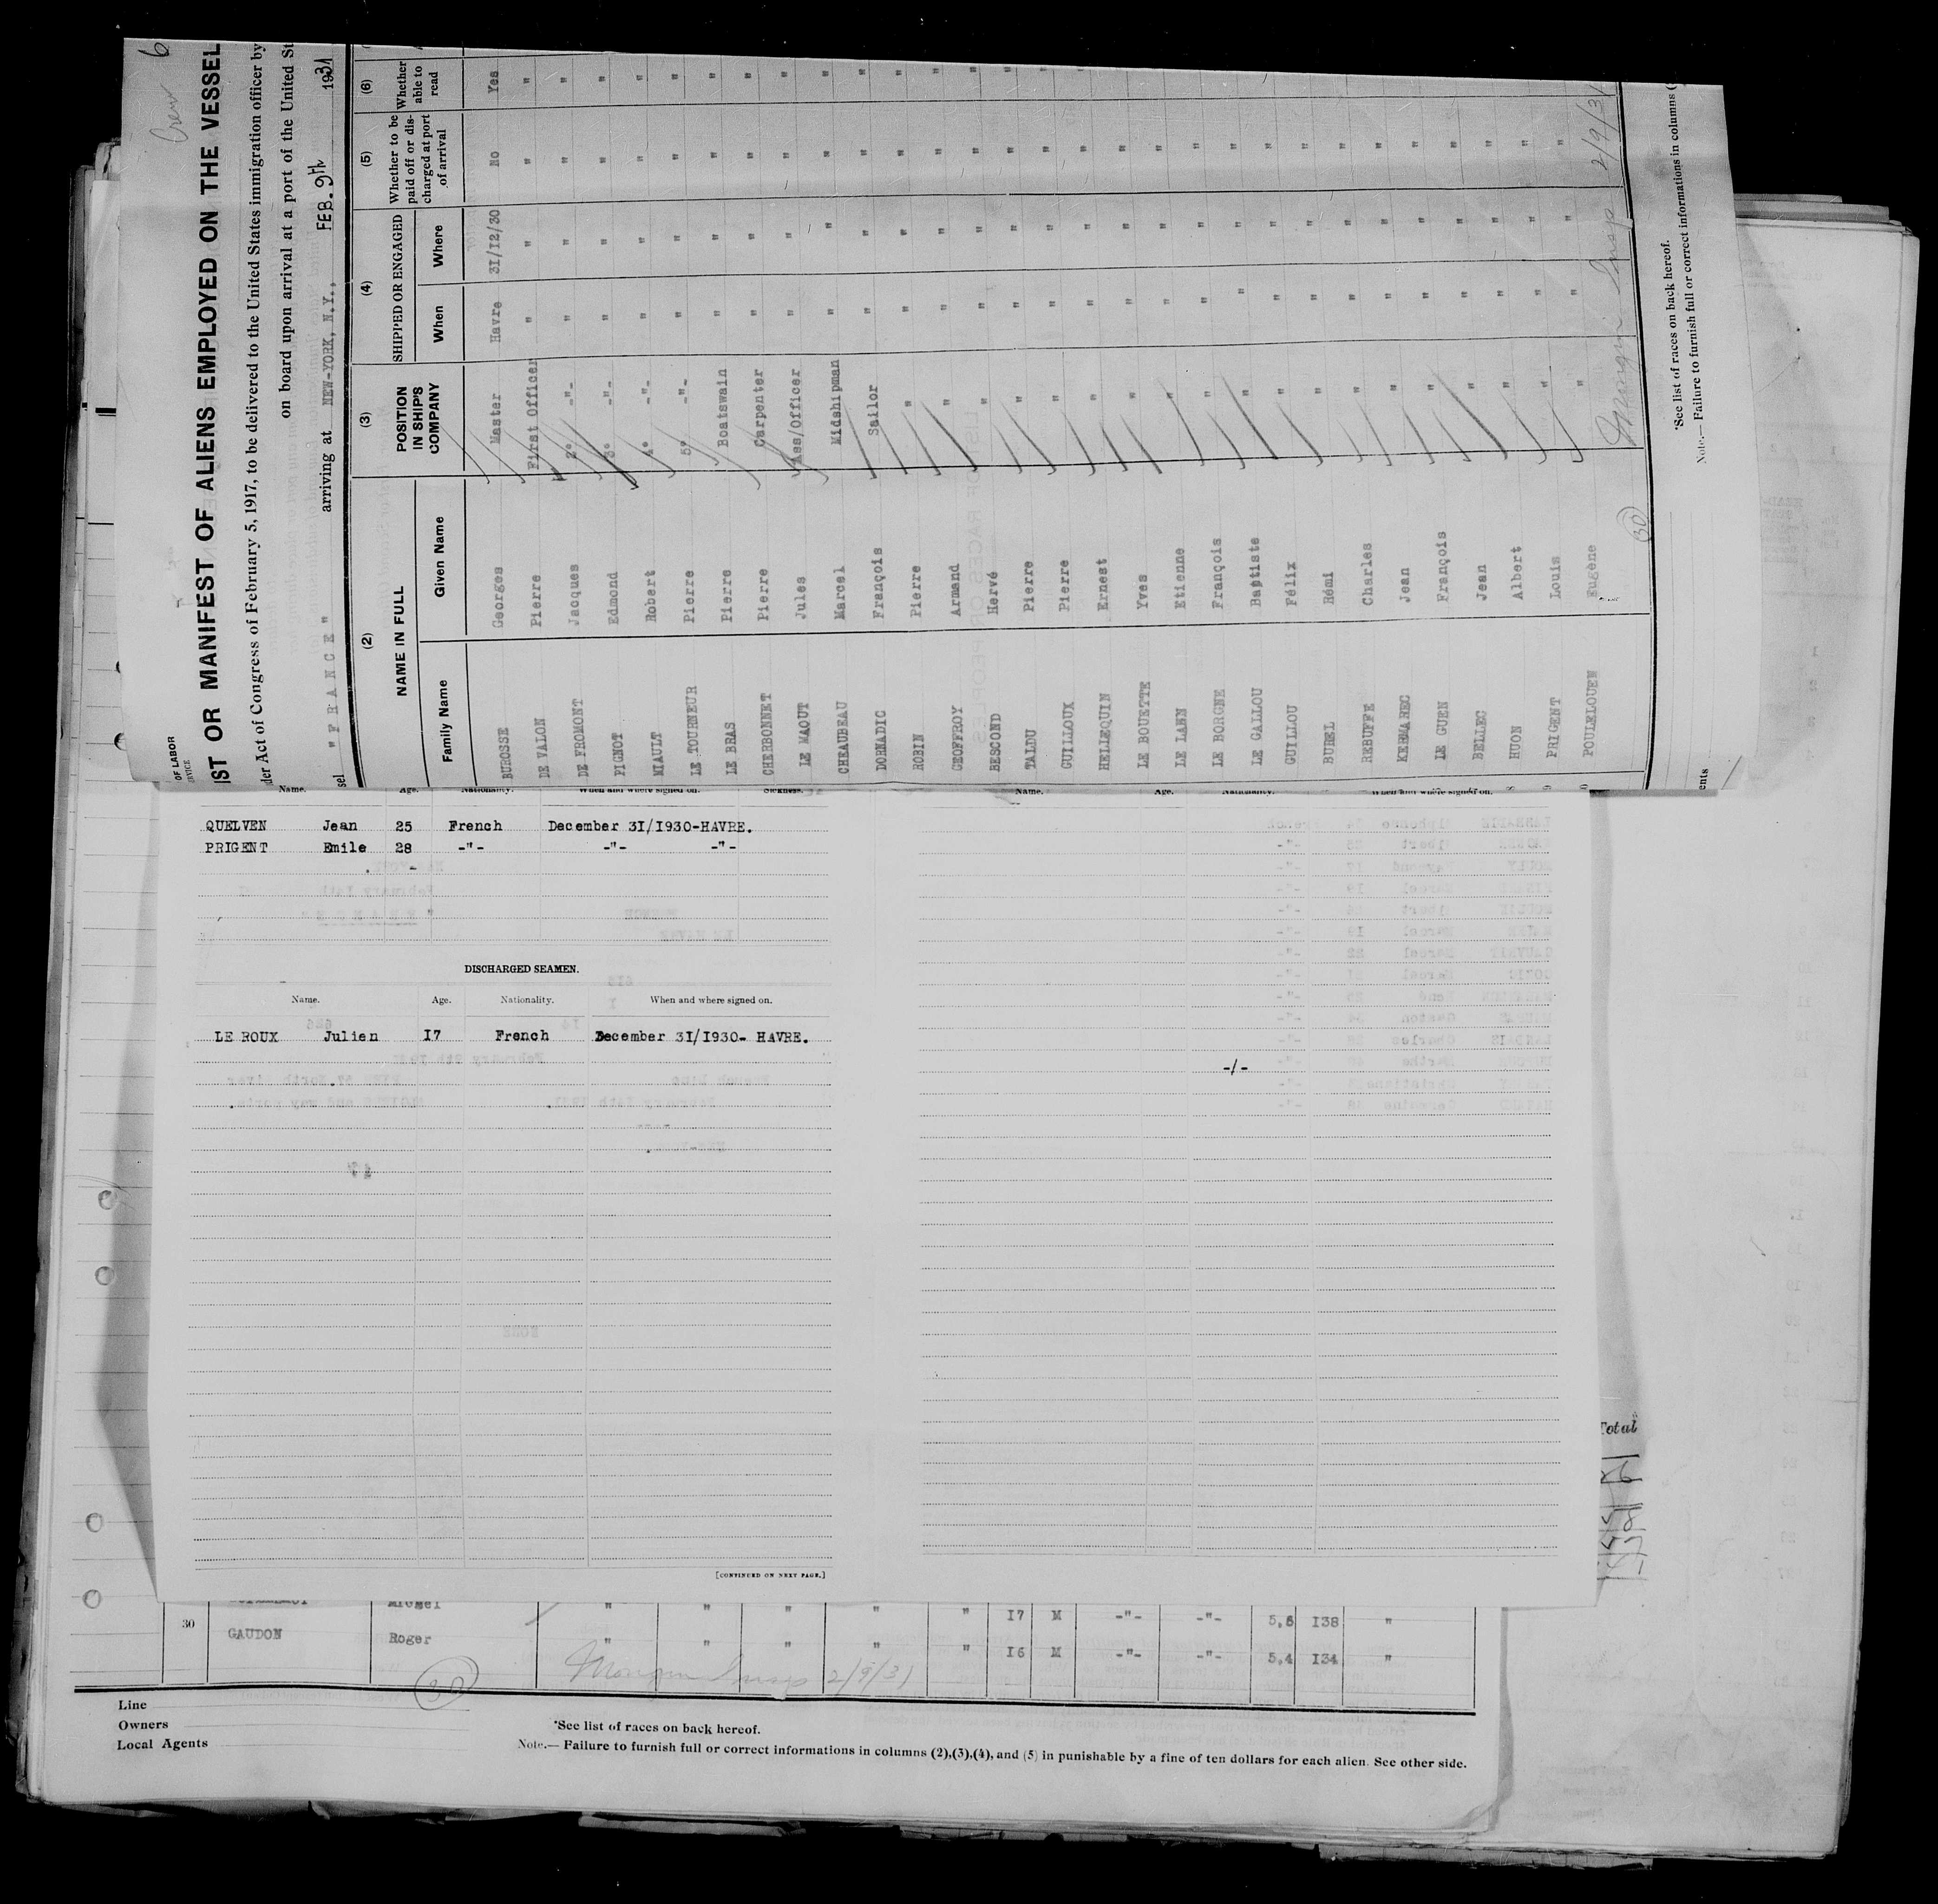 Crew 6
OF LABOR
IST OR MANIFEST OF ALIENS EMPLOYED ON THE VESSEL
der Act of Congress of February 5, 1917, to be delivered to the United States immigration officer by
on board upon arrival at a port of the United St
sel "FRANCE" arriving at NEW-YORK, N.Y., FEB. 9th 1931
(2) (3) (4) (5) (6)
NAME IN FULL POSITION IN SHIP'S COMPANY SHIPPED OR ENGAGED Whether to be paid off or dis- charged at port of arrival Whether able to read
Family Name Given Name When Where
BUROSSE Georges Master Havre 31/12/30 No Yes
DE VALON Pierre First Officer " " " "
DE FROMONT Jacques 2° -"- " " " "
PIGNOT Edmond 3° -"- " " " "
MIAULT Robert 4° -"- " " " "
LE TOURNEUR Pierre 5° -"- " " " "
LE BRAS Pierre Boatswain " " " "
CHERBONNET Pierre Carpenter " " " "
LE MAOUT Jules Ass/Officer " " " "
CHEAUBEAU Marcel Midshipman " " " "
DORNADIC François Sailor " " " "
ROBIN Pierre " " " " "
GEOFFROY Armand " " " " "
BESCOND Hervé " " " " "
TALDU Pierre " " " " "
GUILLOUX Pierre " " " " "
HELLEQUIN Ernest " " " "
LE BOUETTE Yves " " " "
LE LANN Etienne " " " "
LE BORGNE François " " " "
LE GALLOU Baptiste " " " "
GUILLOU Félix " " " "
BUREL Rémi " " " "
REBUFFE Charles " " " "
KERMAREC Jean " " " "
LE GUEN François " " " "
BELLEC Jean " " " "
HUON Albert " " " "
PRIGENT Louis " " " "
POULELOUEN Eugène " " "
30 Insp 2/9/31
*See list of races on back hereof.
Note.— Failure to furnish full or correct informations in columns (
ents
Name. Age. Nationality. When and where signed on. Sickness.
Name. Age. Nationality. When and where signed on.
QUELVEN Jean 25 French December 31/1930-HAVRE.
PRIGENT Emile 28 -"- -"- -"-
DISCHARGED SEAMEN.
Name. Age. Nationality. When and where signed on.
LE ROUX Julien 17 French December 31/1930- HAVRE.
-/-
Total
[CONTINUED ON NEXT PAGE.]
" " " " " 17 M -"- -"- 5,6 138 "
30 GAUDON Roger " " " " " 16 M -"- -"- 5,4 134 "
30 2/9/31
Line
Owners
Local Agents
*See list of races on back hereof.
Note.— Failure to furnish full or correct informations in columns (2),(3),(4), and (5) in punishable by a fine of ten dollars for each alien. See other side.